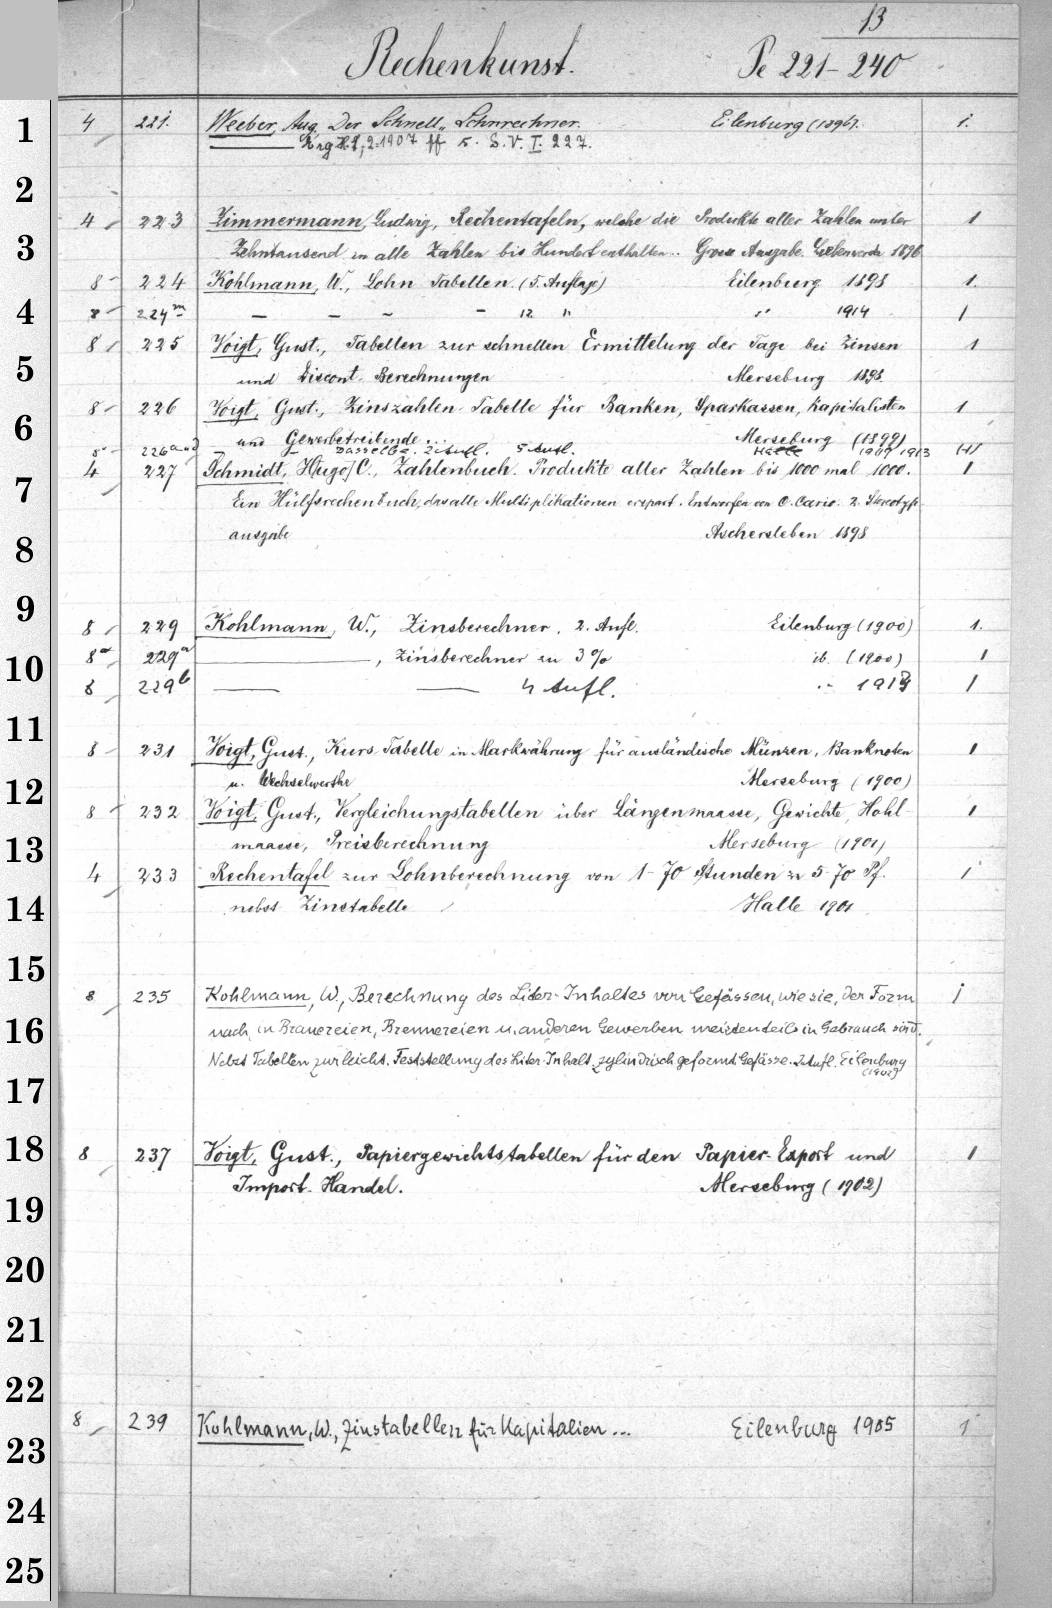 13
Rechenkunst. Pe 221-240
1
4 221. Weeber, Aug. Der Schnell-Lohnrechner. Eilenburg (1896). 1.
Jrg. 1907 ff s. S.V. I. 227.
2
4 223 Zimmermann, Ludwig, Rechentafeln, welche die Produkte aller Zahlen unter 1
3
Zehntausend in alle Zahlen bis Hundert enthalten.. Grosse Ausgabe. Liebenwerda 1896
8 224 Kohlmann, W., Lohn Tabellen. (5. Auflage) Eilenburg 1898 1.
4
8 224m — — — — 12 " " 1914 1
8 225 Voigt, Gust., Tabellen zur schnellen Ermittelung der Tage bei Zinsen 1
5
und Discont-Berechnungen Merseburg 1898.
8 226 Voigt, Gust., Zinszahlen-Tabelle für Banken, Sparkassen, Kapitalisten 1
6
und Gewerbetreibende... Merseburg (1899)
8 226a und Dasselbe. 2. Aufl. 5 Aufl. Halle 1907 1913 1+1
4 227 Schmidt, Hugo, C., Zahlenbuch. Produkte aller Zahlen bis 1000 mal 1000. 1
7
Ein Hülfsrechenbuch, das alle Multiplikationen erspart. Entworfen von C. Cario. 2. Stereotyp-
ausgabe Aschersleben 1898
8
9
8 229 Kohlmann, W., Zinsberechner. 2. Aufl. Eilenburg (1900) 1.
10
8a 229a ———, Zinsberechner zu 3% ib. (1900) 1
8 229b — — 4 Aufl. " 1913 1
11
8 231 Voigt, Gust., Kurs-Tabelle in Markwährung für ausländische Münzen, Banknoten 1
12
u. Wechselwerthe Merseburg (1900)
8 232 Voigt, Gust., Vergleichungstabellen über Längenmaasse, Gewichte, Hohl- 1
13
maasse, Preisberechnung Merseburg (1901)
4 233 Rechentafel zur Lohnberechnung von 1-70 Stunden zu 5-70 Pf. 1
14
nebst Zinstabelle Halle 1901
15
8 235 Kohlmann, W., Berechnung des Liter-Inhaltes von Gefässen, wie sie, der Form 1
16
nach, in Brauereien, Brennereien u. anderen Gewerben meistenteils in Gebrauch sind.
Nebst Tabellen zur leicht. Feststellung des Liter-Inhalt. zylindrisch geformt. Gefässe. 2. Aufl. Eilenburg
(1902)
17
18
8 237 Voigt, Gust., Papiergewichtstabellen für den Papier-Export und 1
Import-Handel. Merseburg (1902)
19
20
21
22
8 239 Kohlmann, W., Zinstabellen für Kapitalien ... Eilenburg 1905 1
23
24
25